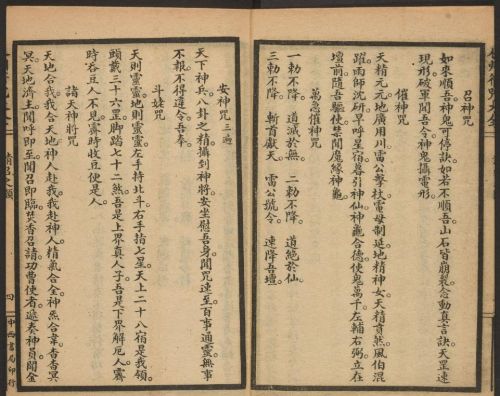 召神咒
如來順吾神鬼可停訣如若不順吾山石皆崩裂念動真言訣天罡速
現形破軍聞吾令神鬼攝電形
催神咒
天精元元地廣用川雷公擊杖電母制延地精神女天精賁煞風伯混
躍雨師沉研早呼星宿暮引神仙神龜合德使鬼萬千左輔右弼立在
壇前隨吾驅使禁聞魔緣神龜
萬急催神咒
一勅不降 道滅於無 二勅不降 道絕於仙
三勅不降 斬首獻天 雷公號令 速降吾壇
安神咒 三遍
天下神兵八卦之精攝到神將安坐慰吾身聞咒速至百事通靈無事
不報不得違令吾奉
斗姥咒
天則靈靈地則靈靈左手持北斗右手指七星天上二十八宿是我領
頭戴三十六罡腳踏七十二煞吾是上界真人子吾是下界解厄人霽
時吞豆人不見霽時收豆便是人
諸天神將咒
天地合我我合天地神人赴我我赴神人精氣合全神炁合韋杳杳冥
冥天地濟主聞呼即至聞召即臨焚香召請功曹使者遞奏神員聞金
四 中西書局印行